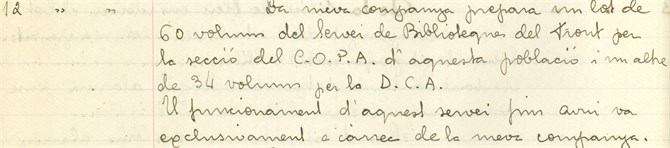 12 " " La meva companya prepara un lot de
60 volums del Servei de Biblioteques del Front per
la secció del C.O.P.A. d'aquesta població i un altre
de 34 volums per la D.C.A.
El funcionament d'aquest servei fins avui va
exclusivament a càrrec de la meva companya.